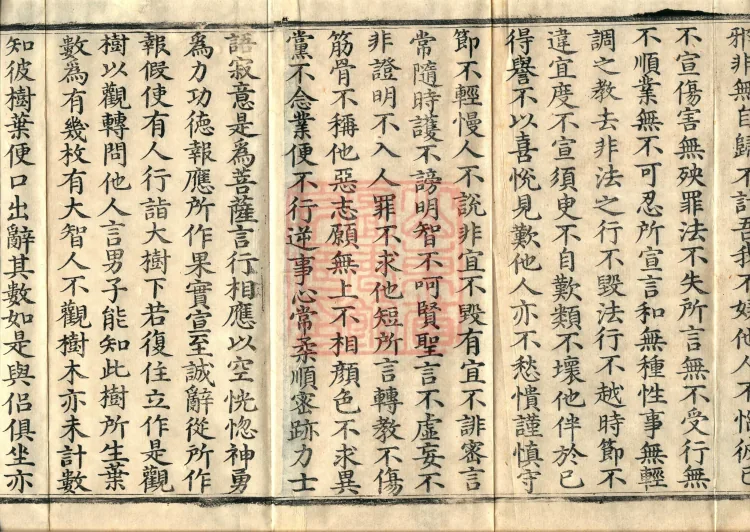 邪非無自歸不計吾我不如他人不恰彼已
不宣傷害無殃罪法不失所言無不受行無
不順業無不可忍所宣言和無種性事無輕
調之教去非法之行不毀法行不越時節不
違宜度不宣須臾不自歎類不壞他伴於已
得譽不以喜悅見歎他人亦不愁憒謹慎守
節不輕慢人不說非宜不毀有宜不誹密言
常隨時護不謗明智不呵賢聖言不虛妄不
非證明不入人罪不求他短所言轉教不傷
筋骨不稱他惡志願無上不相顏色不求異
黨不念業便不行逆事心常柔順密跡力士
語寂意是為菩薩言行相應以空恍惚神勇
為力功德報應所作果實宣至誠辭從所作
報假使有人行詣大樹下若復住立作是觀
樹以觀轉問他人言男子能知此樹所生葉
數為有幾枚有大智人不觀樹木亦未計數
知彼樹葉便口出辭其數如是與侶俱坐亦